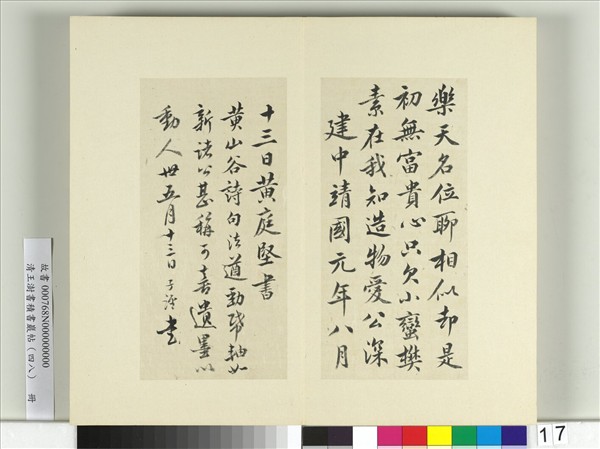 樂天名位聊相似却是
初無富貴心只欠小蠻樊
素在我知造物愛公深
建中靖國元年八月
十三日黃庭堅書
黃山谷詩句法遒勁軸如
新諸公甚稱可喜遺墨以
動人卅五月十三日子書
故書 000768N000000000
清王澍書積書巖帖(四八) 冊
17